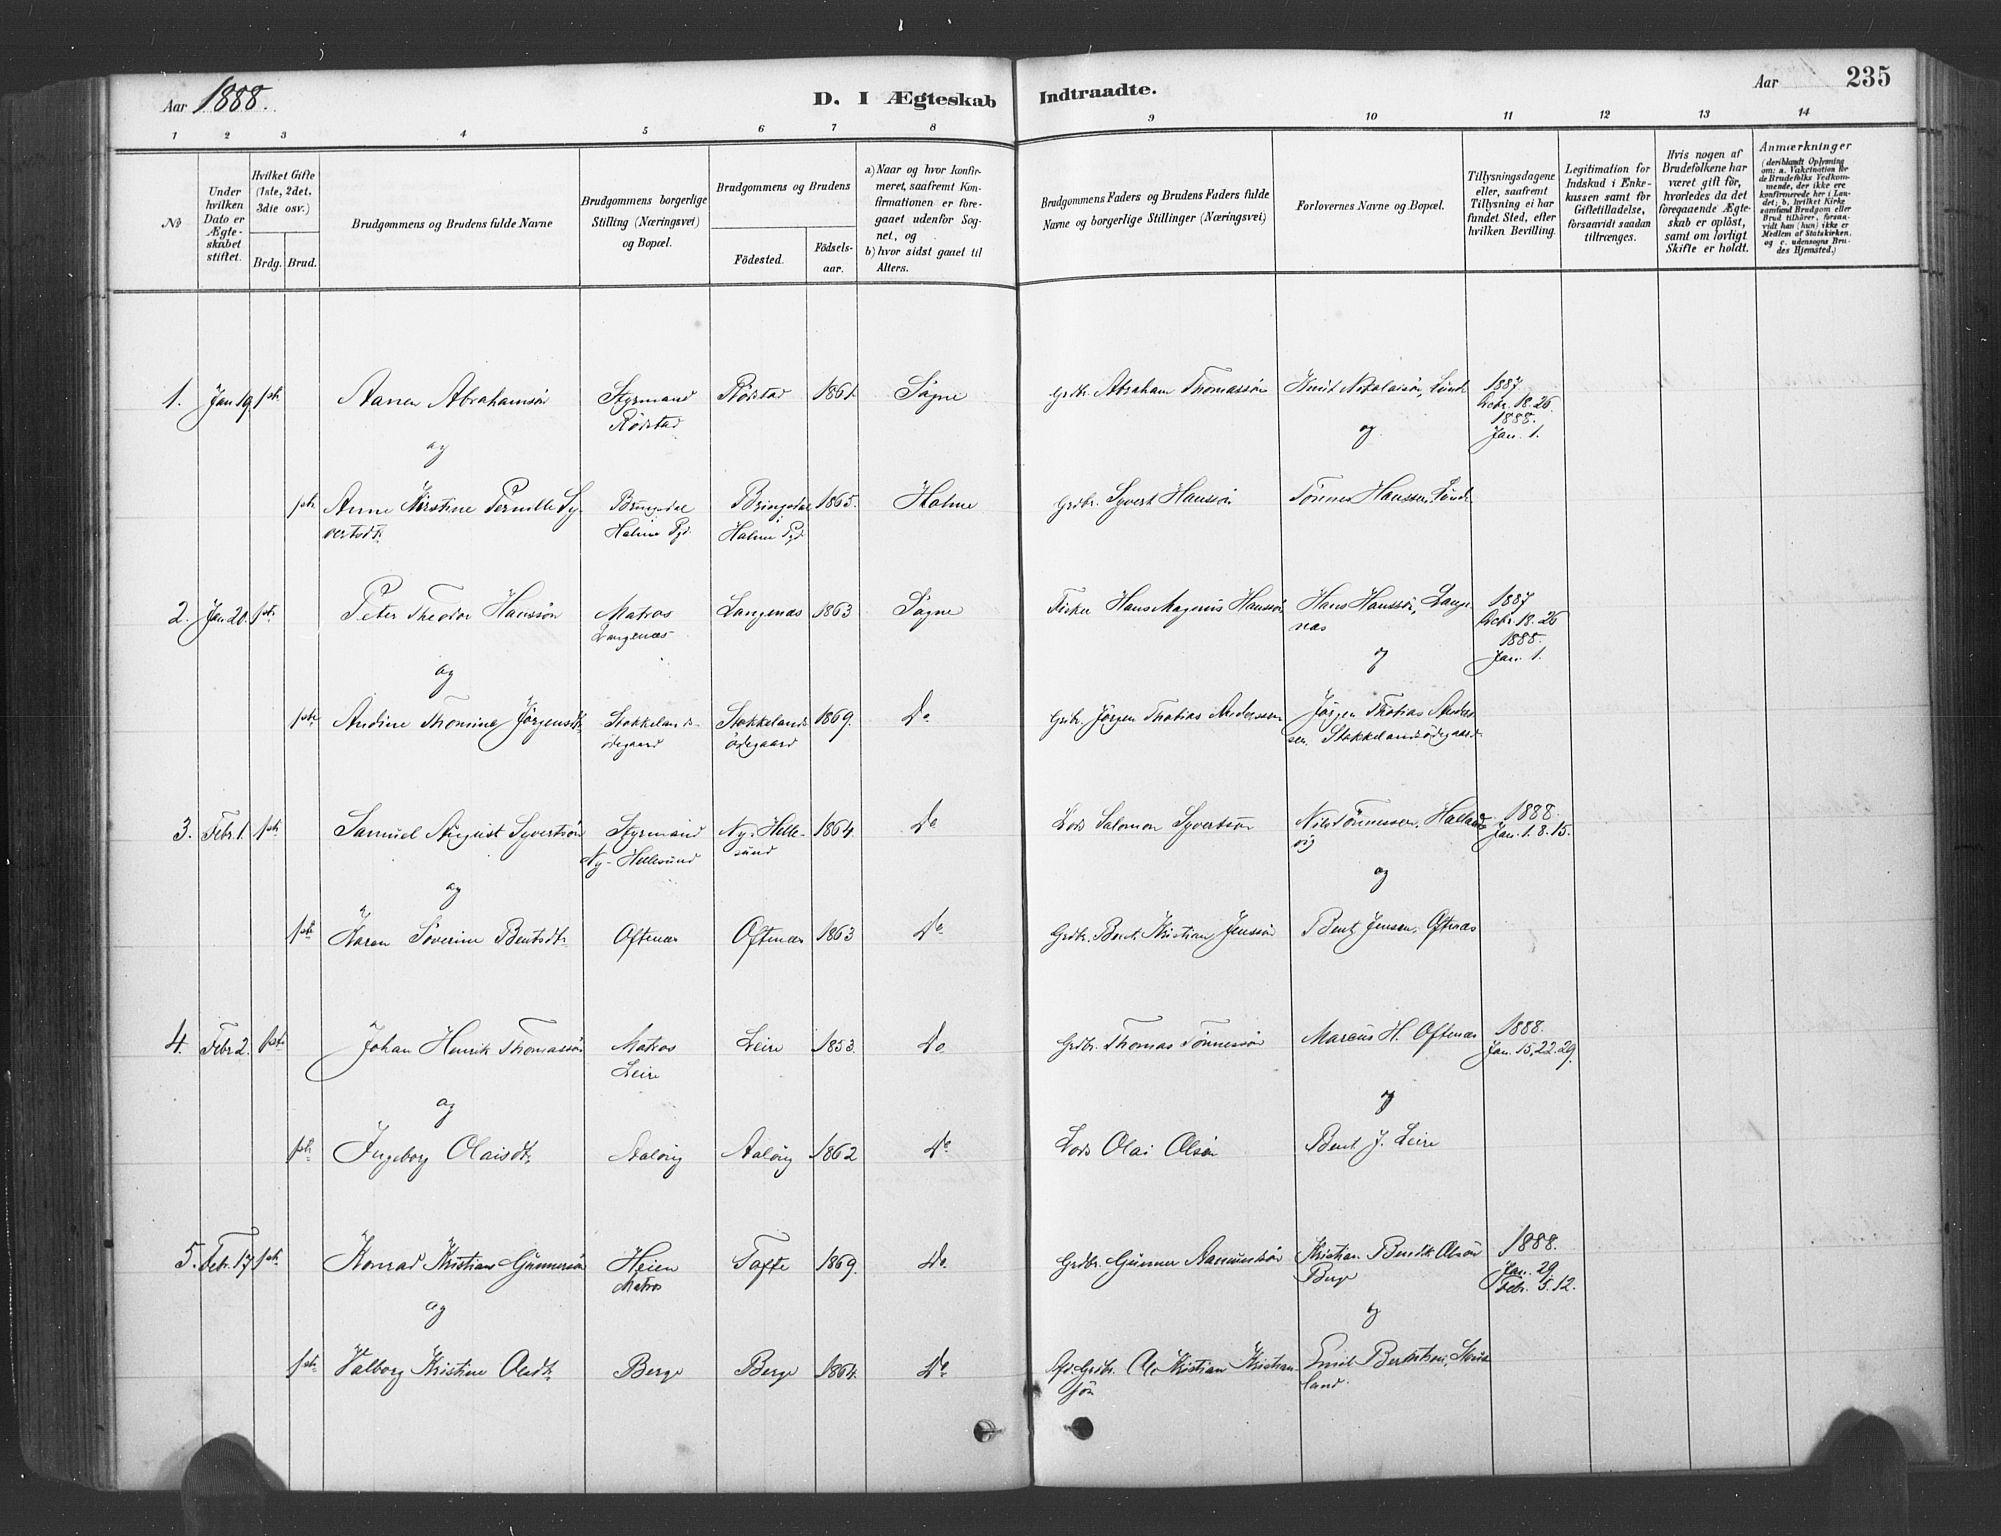 Aar 1888.
D. I Ægteskab Indtraadte.
Aar 235
1 2 3 4 5 6 7 8 9 10 11 12 13 14
No
Under hvilken Dato er Ægteskabet stiftet.
Hvilket Gifte (1ste, 2det, 3die osv.)
Brdg. Brud.
Brudgommens og Brudens fulde Navne
Brudgommens borgerlige Stilling (Næringsvei) og Bopæl.
Brudgommens og Brudens
Fødested. Fødselsaar.
a) Naar og hvor konfirmeret, saafremt Konfirmationen er foregaaet udenfor Sognet, og
b) hvor sidst gaaet til Alters.
Brudgommens Faders og Brudens Faders fulde Navne og borgerlige Stillinger (Næringsvei)
Forlovernes Navne og Bopæl.
Tillysningsdagene eller, saafremt Tillysning ei har fundet Sted, efter hvilken Bevilling.
Legitimation for Indskud i Enkekassen samt for Giftetilladelse, forsaavidt saadan tiltrænges.
Hvis nogen af Brudefolkene har været gift før, hvorledes da det foregaaende Ægteskab er opløst, samt om lovligt Skifte er holdt.
Anmærkninger (deriblandt Oplysning om: a. Vakcination for de Brudefolks Vedkommende, der ikke ere konfirmerede her i Landet; b. hvilket Kirkesamfund Brudgom eller Brud tilhører, forsaavidt han (hun) ikke er Medlem af Statskirken, og c. udensogns Brudes Hjemsted.)
1. Jan 19 1ste Aanen Abrahamsön Styrmand Rödstad 1861. Sögne Grdbr. Abraham Thomassön Knut Nikolaisön, Lund 1887
Rödstad Decbr. 18. 26.
1888.
og og Jan. 1.
1ste Anne Kirstine Pernille Sy- Bringsdal Bringsdal 1865. Halme Grdbr. Syvert Hanssön Tönnes Hanssen, Lund
vertsdt. Halme Pgd. Halme Pgd.
2. Jan 20. 1ste Peter Theodor Hanssön Matros Langenæs 1863 Sögne Fisker Hans Magnus Hanssön Hans Hanssön, Lange- 1887
Langenæs næs Decbr. 18. 26
1888.
og og Jan. 1.
1ste Andine Thomine Jörgensdt. Stokkelands- Stokkelands 1869. Do Grdbr. Jörgen Thobias Anderssen Jörgen Thobias Anders-
ödegaard ödegaard sen. Stokkelandsödegaard
3. Febr. 1. 1ste Samuel August Syvertsön Styrmand Ny-Helle- 1864. Do Lods Salomon Syvertsön Nils Tönnessen, Hallands- 1888.
Ny-Hellesund sund vig Jan. 1. 8. 15.
og og
1ste Karen Söverine Bentsdt. Oftenæs Oftenæs 1863 Do Grdbr. Bent Kristian Jenssön Bent Jensen, Oftenæs
4. Febr 2. 1ste Johan Henrik Thomassön Matros Leire 1853. Do Grdbr. Thomas Tönnessön Marcus H. Oftenæs 1888.
Leire Jan. 15, 22. 29.
og og
1ste Ingeborg Olaisdt. Aalövig Aalövig 1862 Do Lods Olai Olsön Bent J. Leire
5. Febr. 17 1ste Konrad Kristian Gunnersön Heien Tofte 1869. Do Grdbr. Gunner Aanundsön Kristian Bendik Olsön 1888.
Matros Berge Jan. 29
Febr. 5. 12.
og og
1ste Valborg Kristine Olsdt. Berge Berge 1864. Do Grdbr. Ole Kristian Kristian- Emil Berntsen,
sön land.